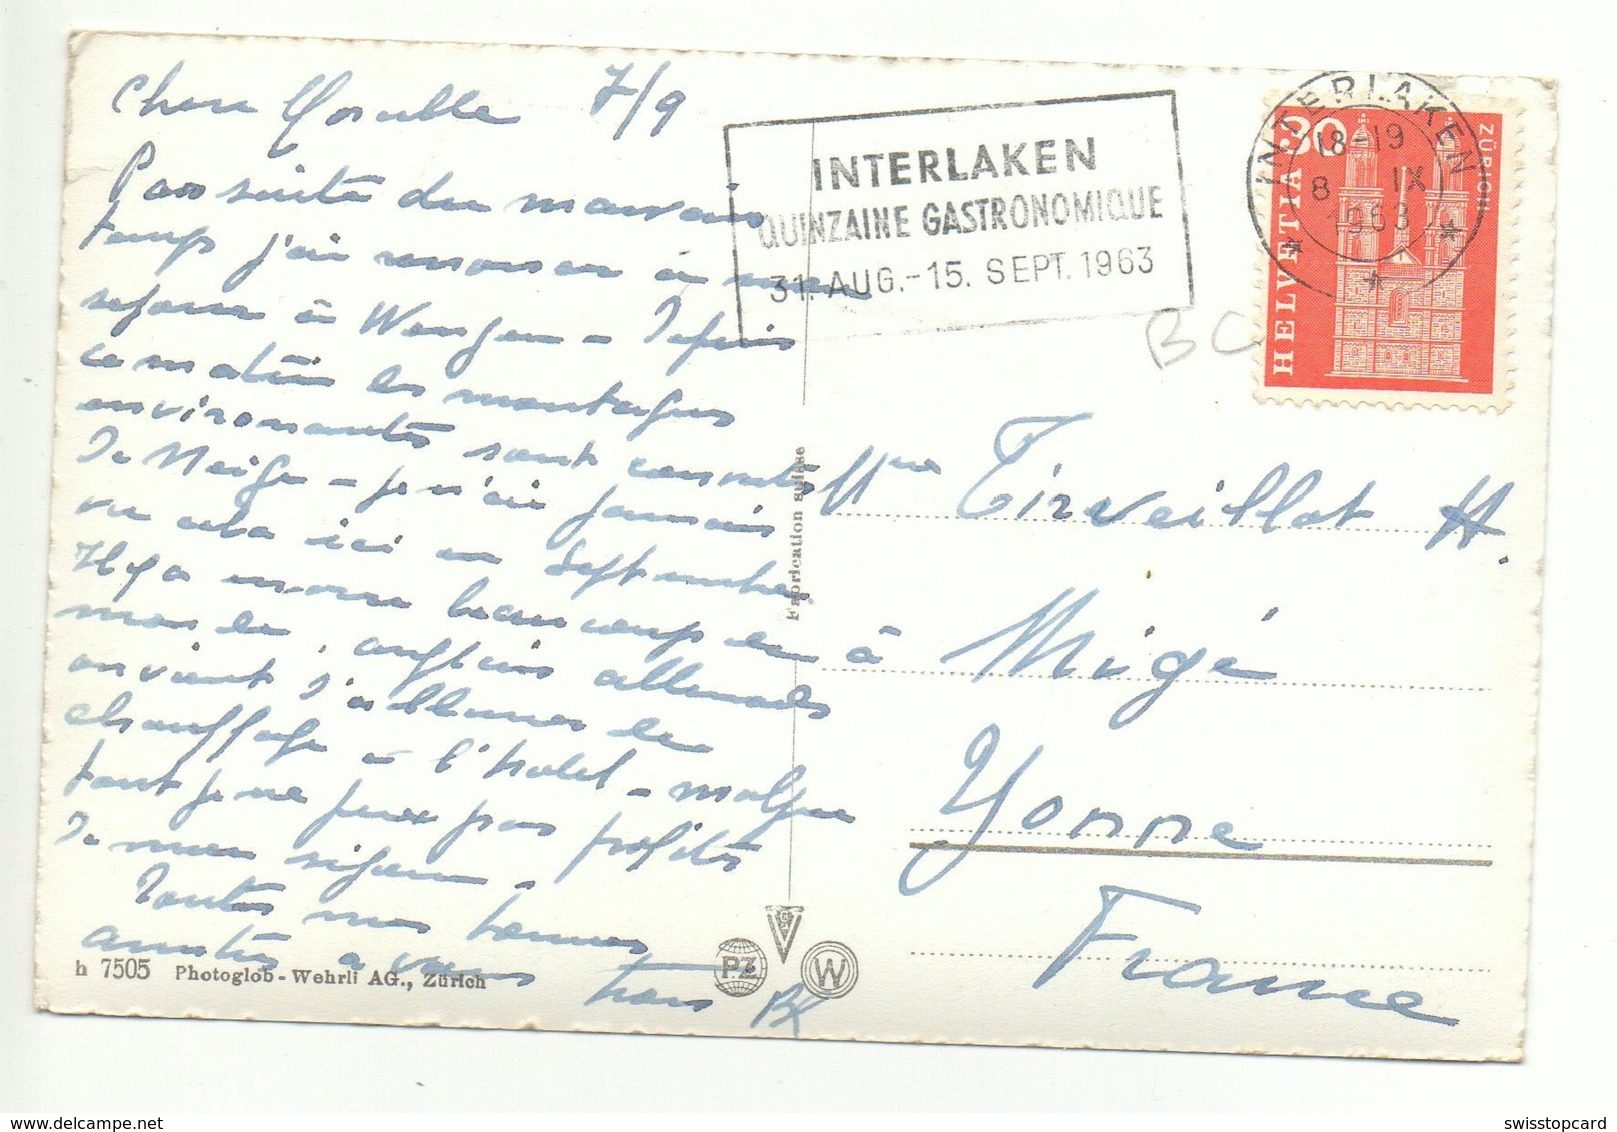 7/9
Par suite du mauvais
temps j'ai renoncer à mon
séjour à Wengen – Depuis
ce matin les montagnes
environantes sont couvertes
de Neige – je n'ai jamais
vu cela ici en Septembre
Il y a encore beaucoup de
monde, anglais allemands
on vient d'allumer le
chauffage à l'hotel – malgré
tout je ne peux pas profiter
de mon séjour.
Toutes mes bonnes
amitiés a vous
tous
INTERLAKEN
QUINZAINE GASTRONOMIQUE
31. AUG.-15. SEPT. 1963
INTERLAKEN
18-19
8 IX
1963
HELVETIA 30
ZÜRICH
BC
Mme Tirveillot H.
à Migé
Yonne
France
Fabrication suisse
h 7505 Photoglob-Wehrli AG., Zürich
PZ
W
delcampe.net
swisstopcard